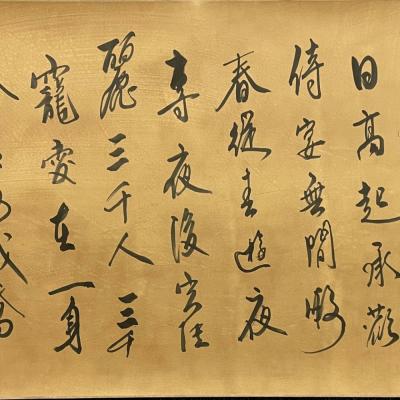 日高起承歡
侍宴無間暇
春從春遊夜
專夜後宮佳
麗三千人三千
寵愛在一身
成嬌